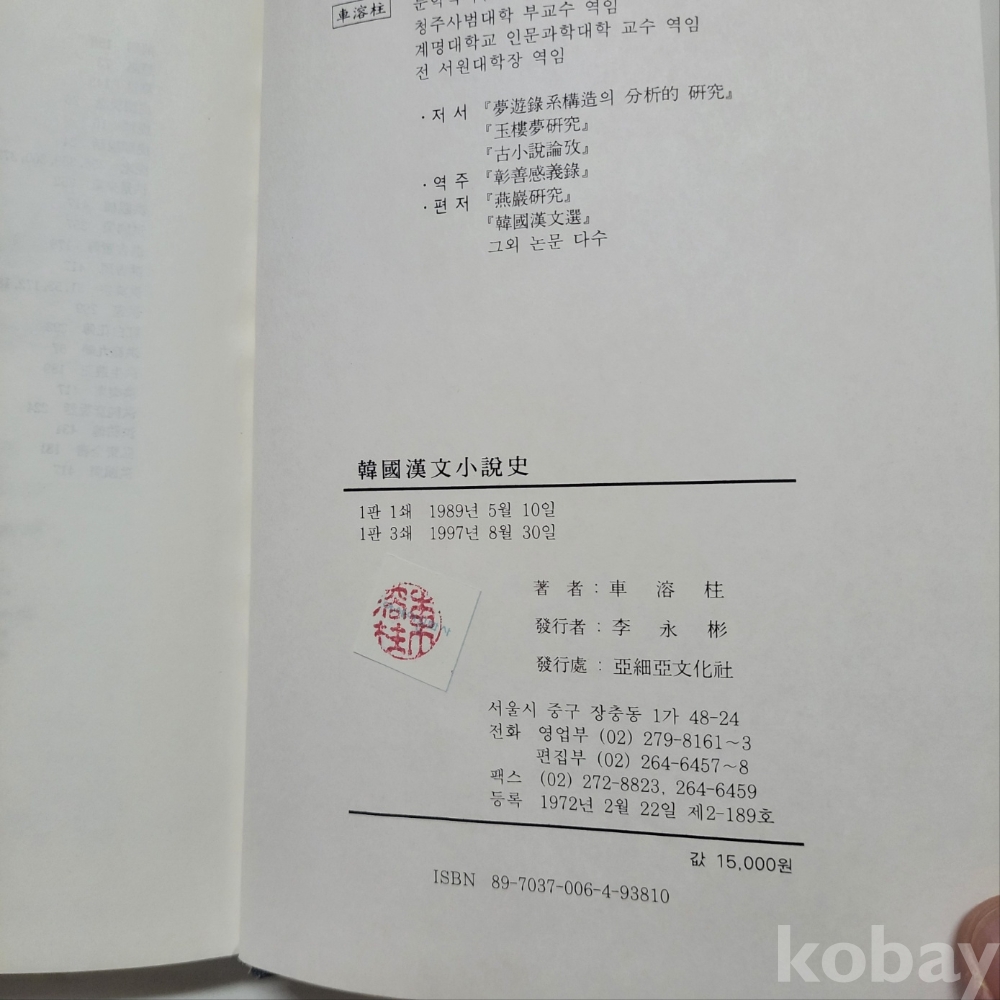 車溶柱
청주사범대학 부교수 역임
계명대학교 인문과학대학 교수 역임
전 서원대학장 역임
· 저서 『夢遊錄系構造의 分析的 硏究』
『玉樓夢硏究』
『古小說論攷』
· 역주 『彰善感義錄』
· 편저 『燕巖硏究』
『韓國漢文選』
그외 논문 다수
韓國漢文小說史
1판 1쇄 1989년 5월 10일
1판 3쇄 1997년 8월 30일
著者 : 車溶柱
發行者 : 李永彬
發行處 : 亞細亞文化社
車溶柱
서울시 중구 장충동 1가 48-24
전화 영업부 (02) 279-8161~3
편집부 (02) 264-6457~8
팩스 (02) 272-8823, 264-6459
등록 1972년 2월 22일 제2-189호
값 15,000원
ISBN 89-7037-006-4-93810
kobay